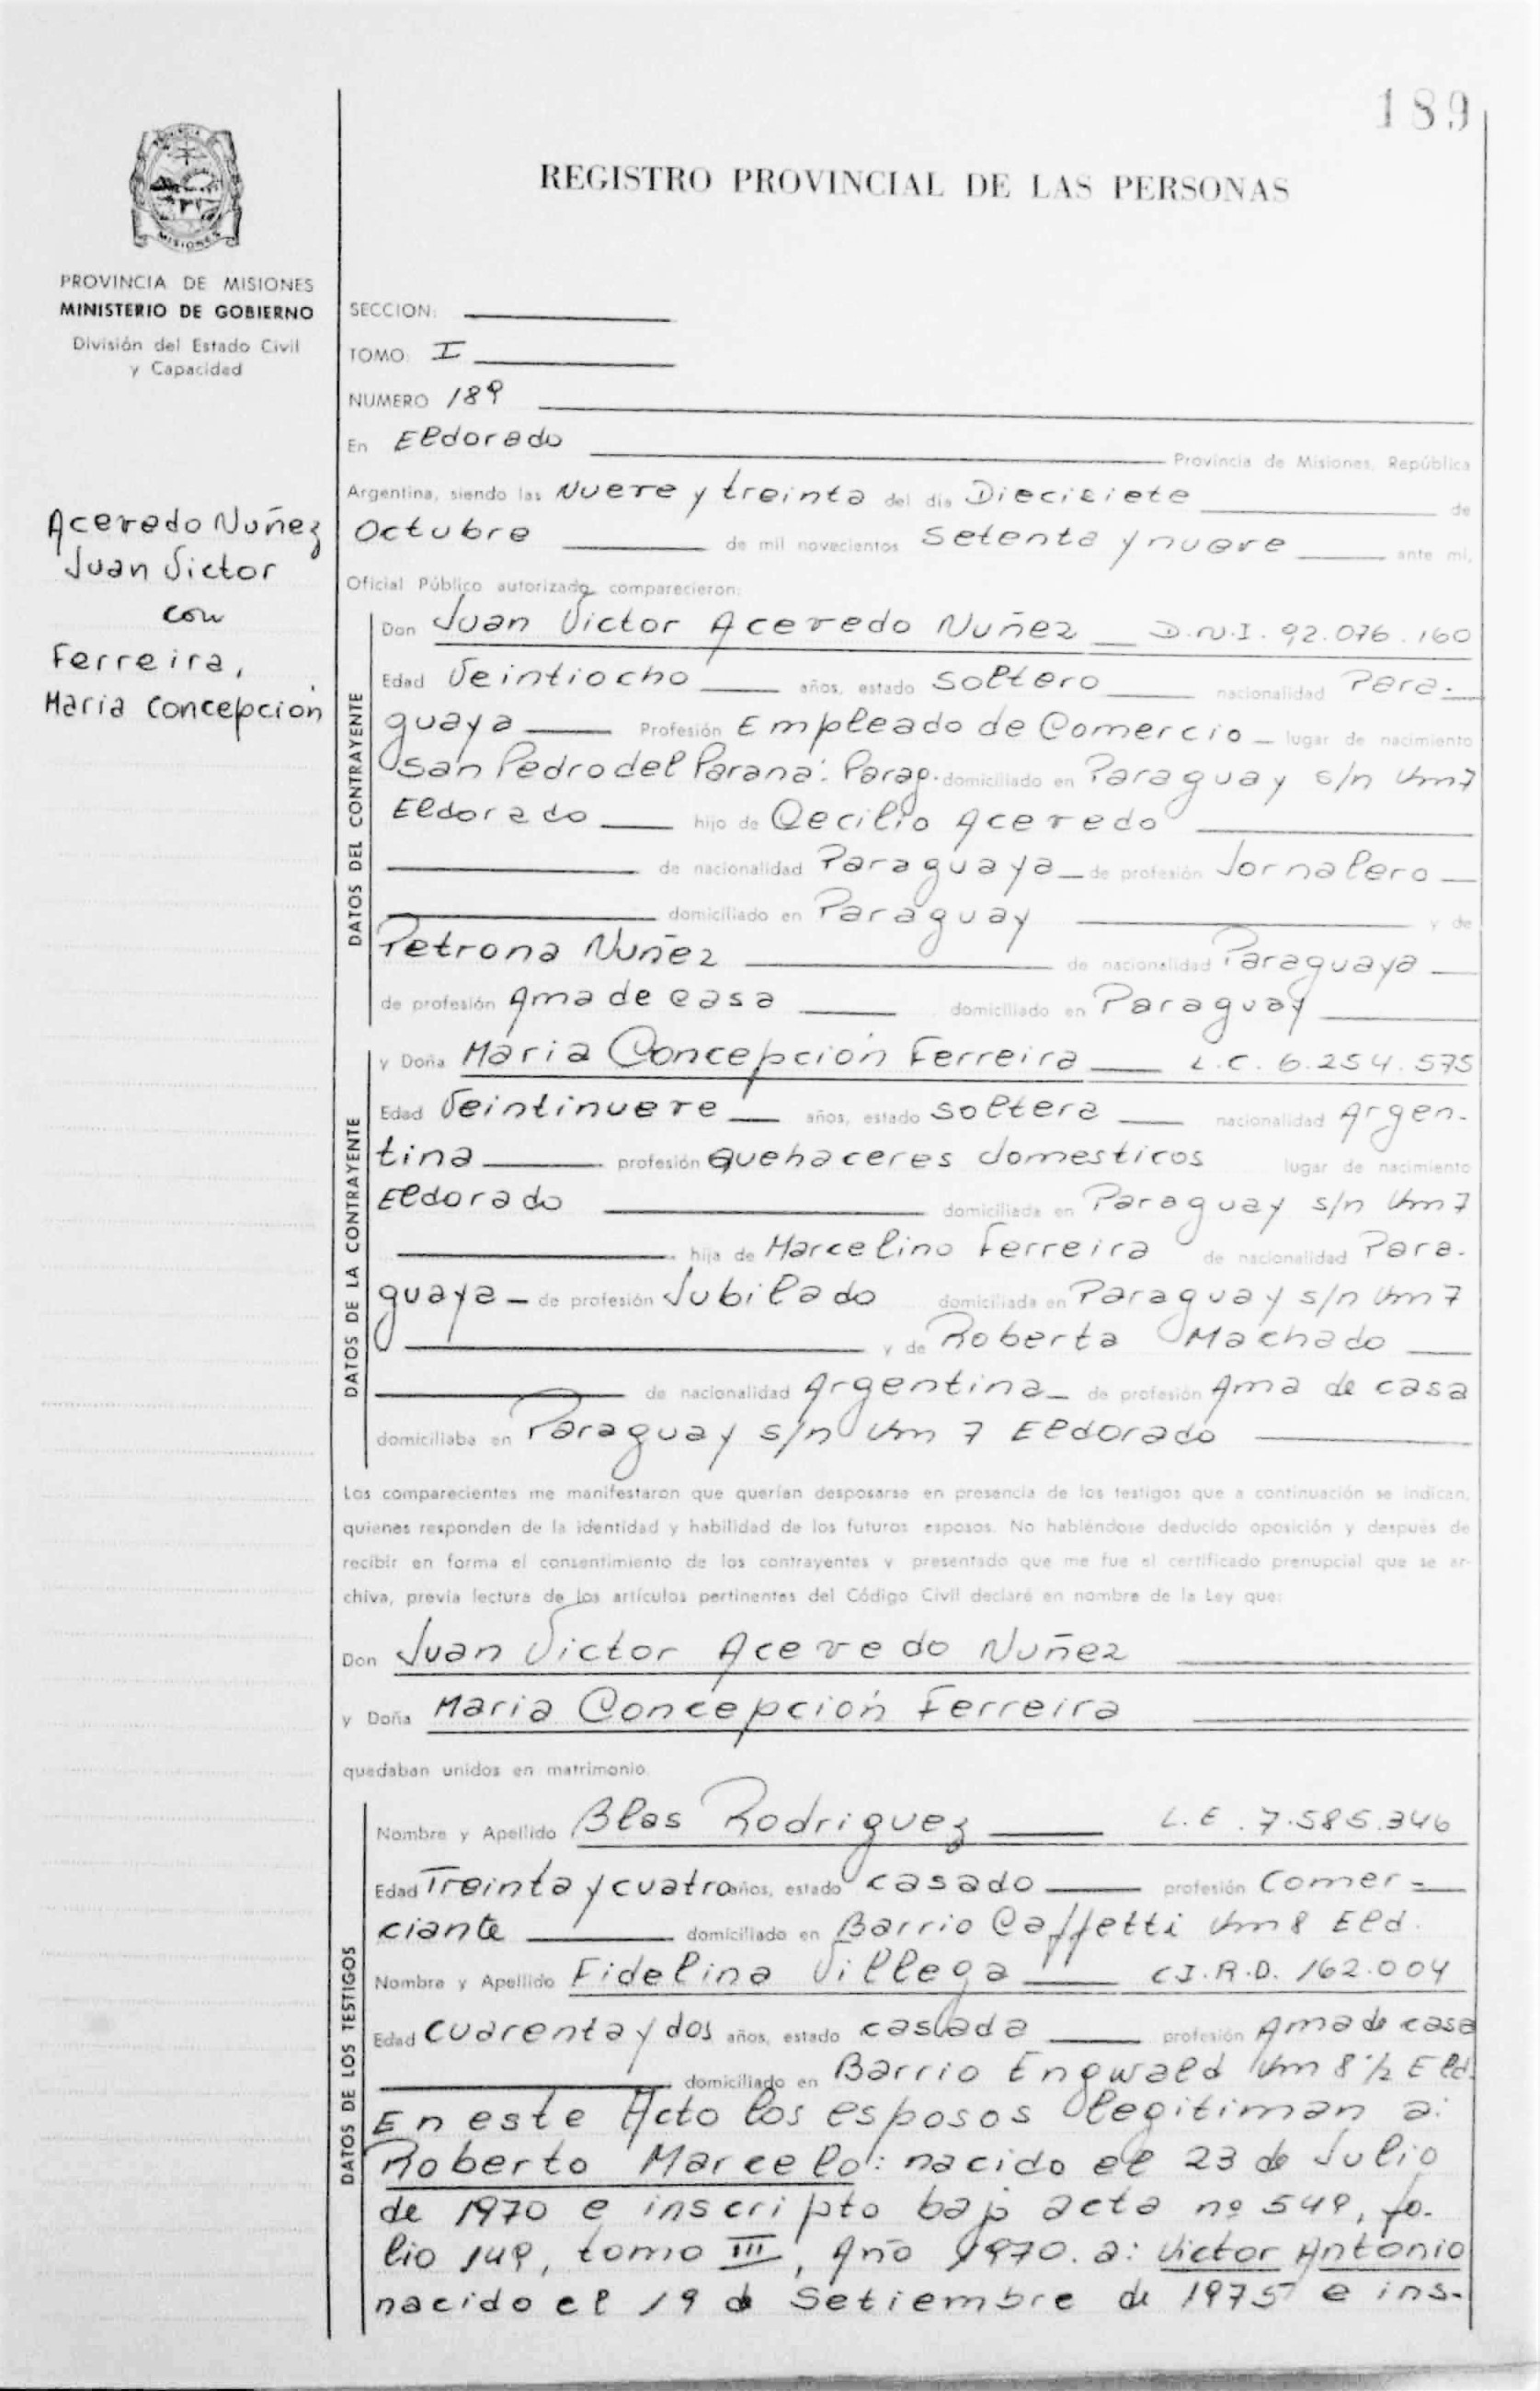 189
REGISTRO PROVINCIAL DE LAS PERSONAS
PROVINCIA
MISIONES
PROVINCIA DE MISIONES
MINISTERIO DE GOBIERNO
División del Estado Civil
y Capacidad
Acevedo Nuñez
Juan Victor
con
Ferreira,
Maria Concepción
SECCION:
TOMO: I
NUMERO 189
En Eldorado Provincia de Misiones, República
Argentina, siendo las Nueve y treinta del día Diecisiete de
Octubre de mil novecientos Setenta y nueve ante mi,
Oficial Público autorizado comparecieron:
DATOS DEL CONTRAYENTE
Don Juan Victor Acevedo Nuñez D.N.I. 92.076.160
Edad Veintiocho años, estado Soltero nacionalidad Para-
guaya Profesión Empleado de Comercio lugar de nacimiento
San Pedro del Paraná: Parag. domiciliado en Paraguay s/n Km 7
Eldorado hijo de Cecilio Acevedo
de nacionalidad Paraguaya de profesión Jornalero
domiciliado en Paraguay y de
Petrona Nuñez de nacionalidad Paraguaya
de profesión Ama de casa domiciliado en Paraguay
DATOS DE LA CONTRAYENTE
y Doña Maria Concepción Ferreira L.C. 6.254.575
Edad Veintinueve años, estado Soltera nacionalidad Argen-
tina profesión Quehaceres domesticos lugar de nacimiento
Eldorado domiciliada en Paraguay s/n Km 7
hija de Marcelino Ferreira de nacionalidad Para-
guaya de profesión Jubilado domiciliada en Paraguay s/n Km 7
y de Roberta Machado
de nacionalidad Argentina de profesión Ama de casa
domiciliaba en Paraguay s/n Km 7 Eldorado
Los comparecientes me manifestaron que querían desposarse en presencia de los testigos que a continuación se indican,
quienes responden de la identidad y habilidad de los futuros esposos. No habiéndose deducido oposición y después de
recibir en forma el consentimiento de los contrayentes y presentado que me fue el certificado prenupcial que se ar-
chiva, previa lectura de los artículos pertinentes del Código Civil declaré en nombre de la Ley que:
Don Juan Victor Acevedo Nuñez
y Doña Maria Concepción Ferreira
quedaban unidos en matrimonio.
DATOS DE LOS TESTIGOS
Nombre y Apellido Blas Rodriguez L.E. 7.585.346
Edad Treinta y cuatro años, estado casado profesión Comer-
ciante domiciliado en Barrio Caffetti Km 8 Eld.
Nombre y Apellido Fidelina Villega C.I.R.D. 162.004
Edad Cuarenta y dos años, estado casada profesión Ama de casa
domiciliado en Barrio Engwald Km 8 1/2 Eld.
En este Acto los esposos legitiman a:
Roberto Marcelo: nacido el 23 de Julio
de 1970 e inscripto bajo acta nº 549, fo-
lio 149, tomo III, Año 1970. a: Victor Antonio
nacido el 19 de Setiembre de 1975 e ins-